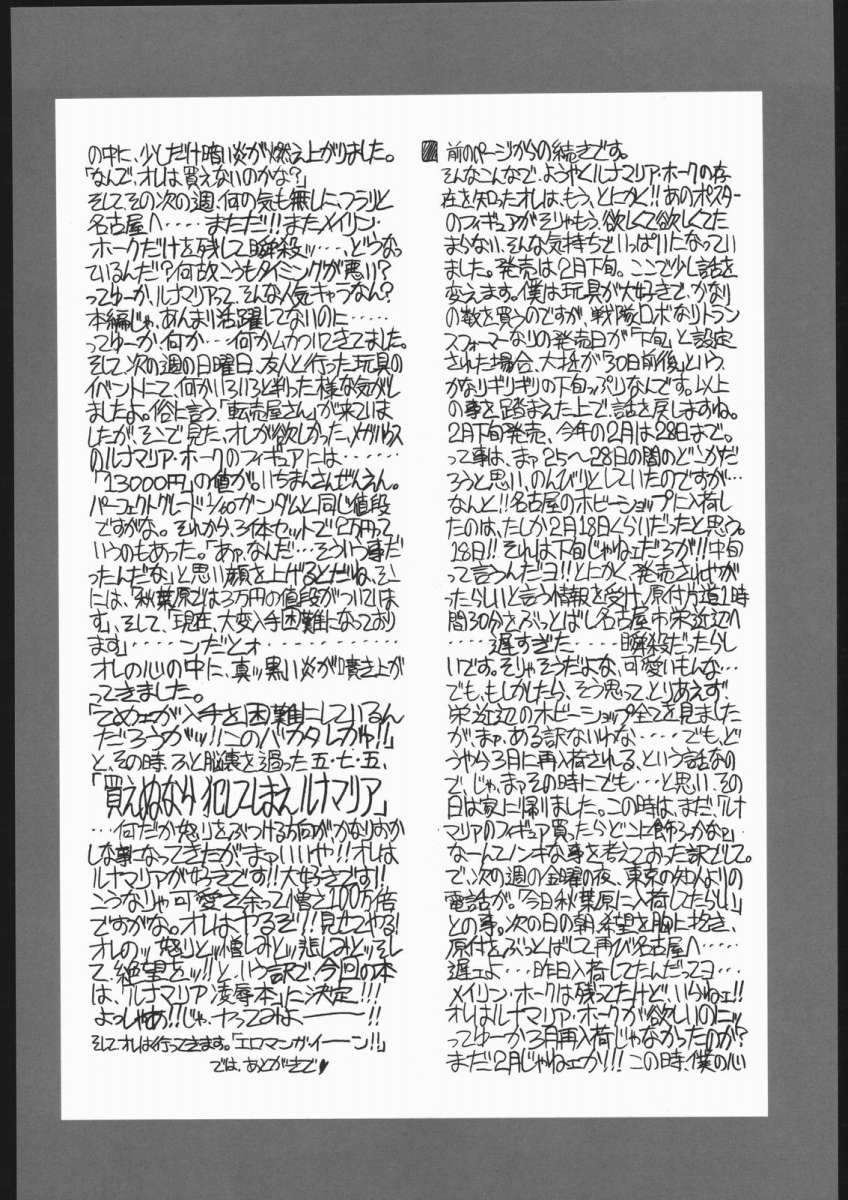 前のページからの続きです。
そんなこんなで、ようやくルナマリア・ホークの存
在を知ったオレは、もう、とにかく!!あのポスター
のフィギュアがそりゃもう、欲しくて欲しくてた
まらない、そんな気持ちでいっぱいになってい
ました。発売は2月下旬。ここで少し話を
変えます。僕は玩具が大好きで、かなり
の数を買うのですが、戦隊ロボなりトラン
スフォーマーなりの発売日が「下旬」と設定
された場合、大抵が「30日前後」という、
かなりギリギリの下旬ップりなんです。以上
の事を踏まえた上で、話を戻しますね。
2月下旬発売、今年の2月は28日まで。
って事は、まァ25〜28日の間のどこかだ
ろうと思い、のんびりとしていたのですが…
なんと!!名古屋のホビーショップに入荷し
たのは、たしか2月18日くらいだったと思う。
18日!!それは下旬じゃねェだろが!!中旬
って言うんだヨ!!とにかく、発売されやが
ったらしいと言う情報を受け、原付片道1時
間30分をぶっとばし名古屋市栄近辺へ
‥‥‥遅すぎた‥‥‥瞬殺だったらし
いです。そりゃそうだよな、可愛いもんな…
でも、もしかしたら、そう思って、とりあえず
栄近辺のホビーショップ全てを見ました
が、まァ、ある訳ないわな、‥‥‥でも、ど
うやら3月に再入荷される、という話なの
で、じゃ、まァその時にでも…と思い、その
日は家に帰りました。この時は、まだ、「ルナ
マリアのフィギュア買ったらどこに飾ろかなァ」
なーんてノンキな事を考えておった訳でして。
で、次の週の金曜の夜、東京の知人よりの
電話が。「今日秋葉原に入荷したらしい」
との事。次の日の朝、希望を胸に抱き、
原付をぶっとばして再び名古屋へ‥‥‥
遅ェよ…昨日入荷してたんだってヨ…
メイリン・ホークは残ってたけど、いらねェ!!
オレはルナマリア・ホークが欲しいのニッ
ってゆーか3月再入荷じゃなかったのか?
まだ2月じゃねェか!!!この時、僕の心
の中に、少しだけ暗い炎が燃え上がりました。
「なんで、オレは買えないのかな?」
そしてその次の週、何の気も無しに、フラリと
名古屋へ‥‥‥まただ!!またメイリン・
ホークだけを残して瞬殺ッ…、どうなっ
ているんだ!?何故こうもタイミングが悪い?
ってゆーか、ルナマリアって、そんな人気キャラなん?
本編じゃ、あんまり活躍してないのに‥‥‥
ってゆーか、何か…何かムカついてきてました。
そして、次の週の日曜日、友人と行った玩具の
イベントにて、何かいろいろと判った様な気がし
ましたよ。俗に言う、「転売屋さん」が来ていま
したが、そこで見た、オレが欲しかった、メガハウス
のルナマリア・ホークのフィギュアには‥‥‥
「13000円」の値が。いちまんさんぜんえん。
パーフェクトグレード1/60ガンダムと同じ値段
ですがな。それから、3体セットで2万円って
いうのもあった。「あァ、なんだ…そういう事だ
ったんだな」と思い顔を上げるとだね、そこ
には、「秋葉原では3万円の値段がついていま
す」、そして、「現在、大変入手困難になっており
ます」‥‥‥ンだとォ‥‥‥‥‥‥‥‥
オレの心の中に、真ッ黒い炎が噴き上が
ってきました。
「てめェが入手を困難にしているん
だろうがッ!!このバカタレガァ!!」
と、その時、ふと脳裏を過った五・七・五、
「買えぬなら 犯してしまえ ルナマリア」
…何だか怒りをぶつける方向がかなりおか
しな事になってきたが、まァいいや!!オレは
ルナマリアが好きです!!大好きです!!
こうなりゃ可愛さ余って憎さ100万倍
ですがな。オレはやるぞ!!見せてやる!
オレのッ怒りとッ憎しみとッ悲しみとッそし
て、絶望をッ!!と、いう訳で、今回の本
は、「ルナマリア凌辱本」に決定!!!
よっしゃあ!!!じゃ、ヤってみよーーー!!
そしてオレは行ってきます。「エロマンガ・イーーン!!」
では、あとがきで♥